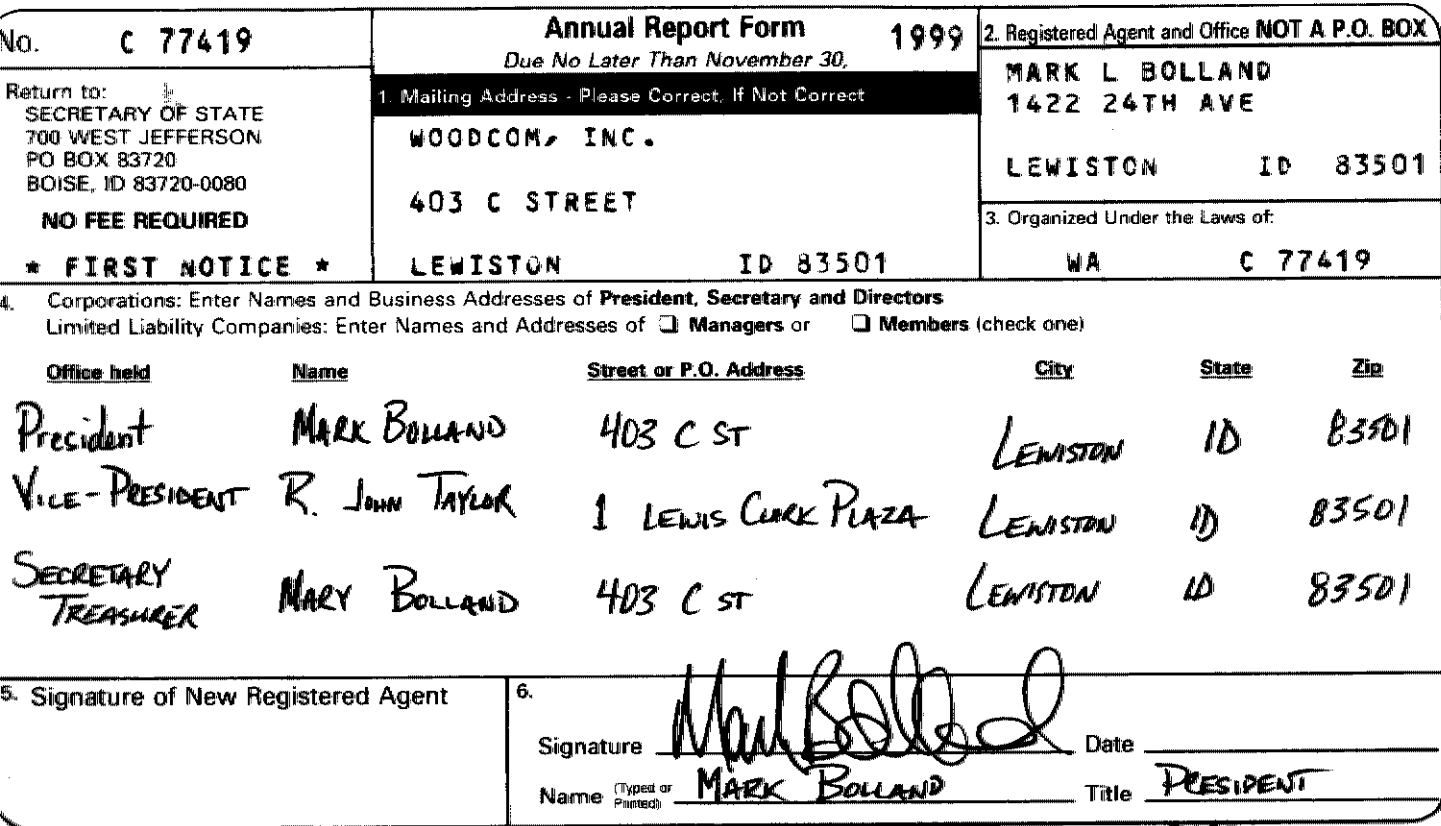 No. C 77419
Return to:
SECRETARY OF STATE
700 WEST JEFFERSON
PO BOX 83720
BOISE, ID 83720-0080
NO FEE REQUIRED
* FIRST NOTICE *
Annual Report Form 1999
Due No Later Than November 30,
1. Mailing Address - Please Correct, If Not Correct
WOODCOM, INC.
403 C STREET
LEWISTON ID 83501
2. Registered Agent and Office NOT A P.O. BOX
MARK L BOLLAND
1422 24TH AVE
LEWISTON ID 83501
3. Organized Under the Laws of:
WA C 77419
4. Corporations: Enter Names and Business Addresses of President, Secretary and Directors
Limited Liability Companies: Enter Names and Addresses of ❑ Managers or ❑ Members (check one)
Office held Name Street or P.O. Address City State Zip
President MARK BOLLAND 403 C ST LEWISTON ID 83501
VICE-PRESIDENT R. JOHN TAYLOR 1 LEWIS CLARK PLAZA LEWISTON ID 83501
SECRETARY
TREASURER MARY BOLLAND 403 C ST LEWISTON ID 83501
5. Signature of New Registered Agent
6.
Signature Mark Bolland Date
Name (Typed or Printed) MARK BOLLAND Title PRESIDENT